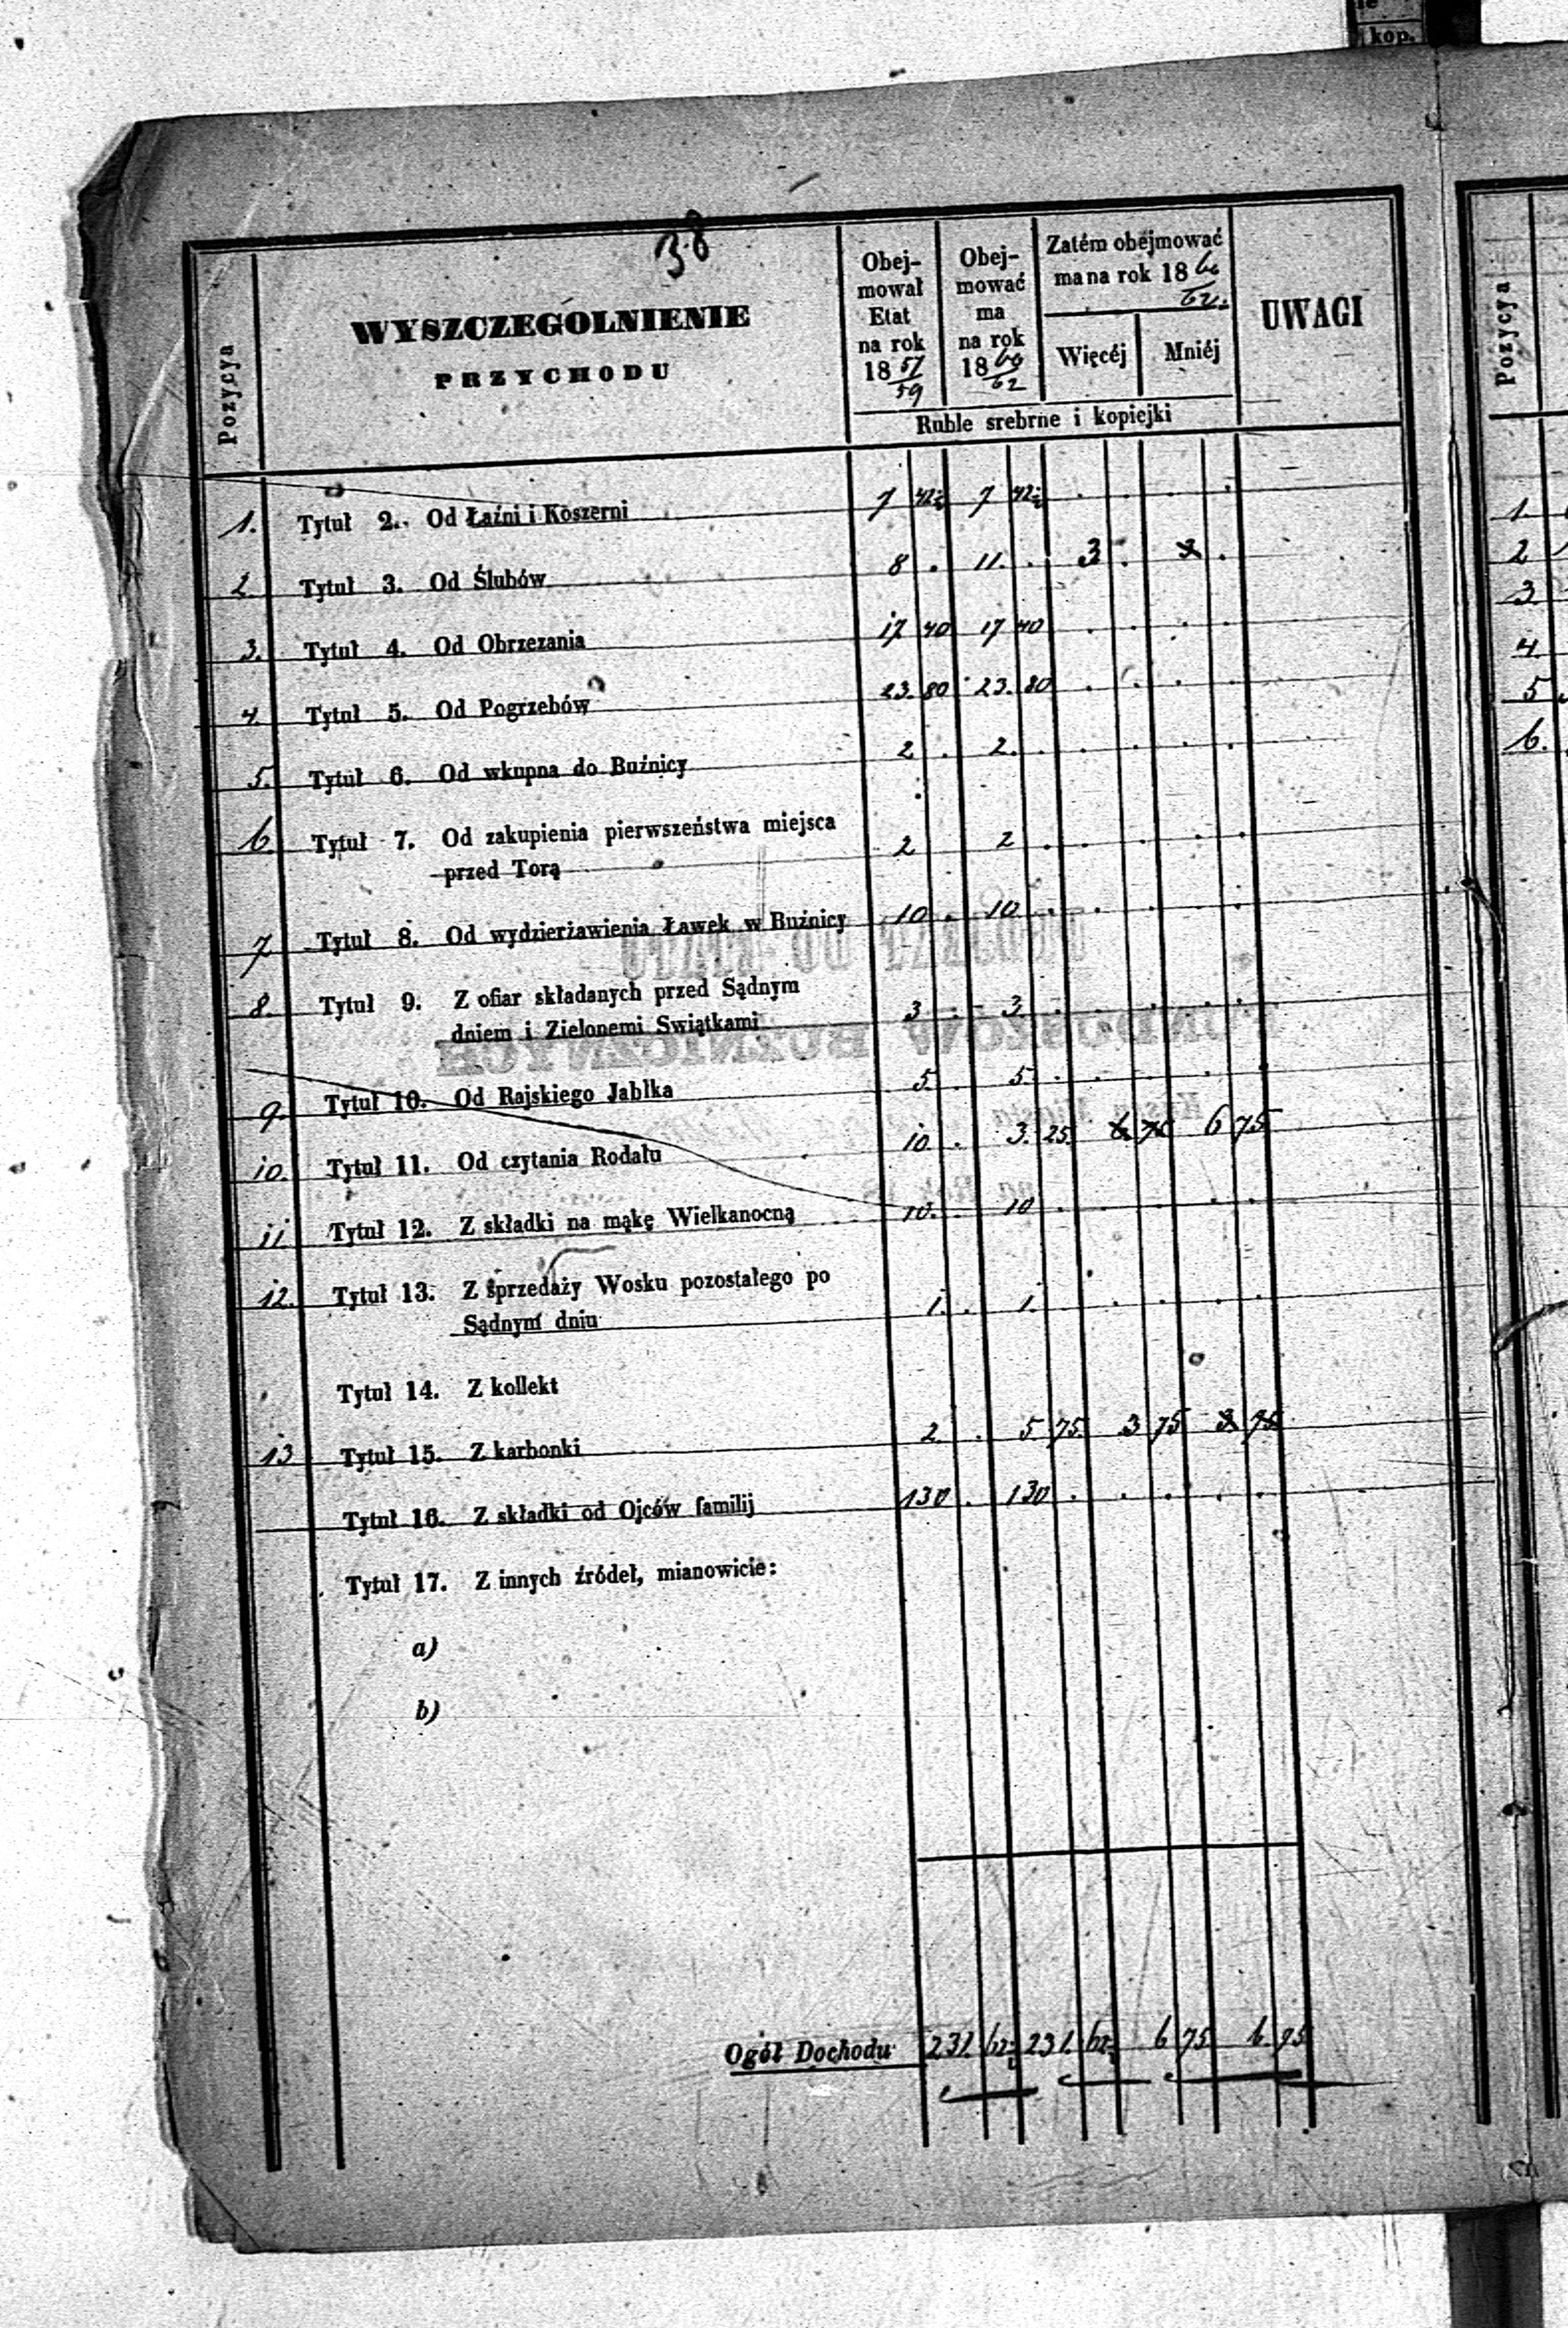 kop.
38
Pozycya
WYSZCZEGÓLNIENIE
PRZYCHODU
Obej-
mował
Etat
na rok
18 57/59
Obej-
mować
ma
na rok
18 60/62
Zatém obejmować
ma na rok 18 60/62.
Więcéj
Mniéj
UWAGI
Ruble srebrne i kopiejki
1. Tytuł 2. Od Łaźni i Koszerni 7 42½ 7 42½ . . . .
2. Tytuł 3. Od Ślubów 8 . 11. . 3 . 3 .
3. Tytuł 4. Od Obrzezania 17 40 17 40 . . . .
4. Tytuł 5. Od Pogrzebów 23. 80 23. 80 . . . .
5. Tytuł 6. Od wkupna do Buźnicy 2 . 2. . . . . .
6. Tytuł 7. Od zakupienia pierwszeństwa miejsca
przed Torą 2 2 . . . . .
7 Tytuł 8. Od wydzierżawienia Ławek w Buźnicy 10 . 10 . . . . .
8. Tytuł 9. Z ofiar składanych przed Sądnym
dniem i Zielonemi Swiątkami 3 . 3. . . . . .
9. Tytuł 10. Od Rajskiego Jabłka 5. . 5. . . . . .
10. Tytuł 11. Od czytania Rodału 10 . 3. 25. 6 75 6 75
11 Tytuł 12. Z składki na mąkę Wielkanocną 10. . 10 . . . . .
12. Tytuł 13. Z sprzedaży Wosku pozostałego po
Sądnym dniu 1. . 1. . . . .
Tytuł 14. Z kollekt
13 Tytuł 15. Z karbonki 2. . 5 75. 3 75 3 75
Tytuł 16. Z składki od Ojców familij 130 . 130 . . . . .
Tytuł 17. Z innych źródeł, mianowicie:
a)
b)
Ogół Dochodu 231. 62½ 231. 62½ 6 75 6. 75
Pozycya
1.
2
3
4.
5
6.